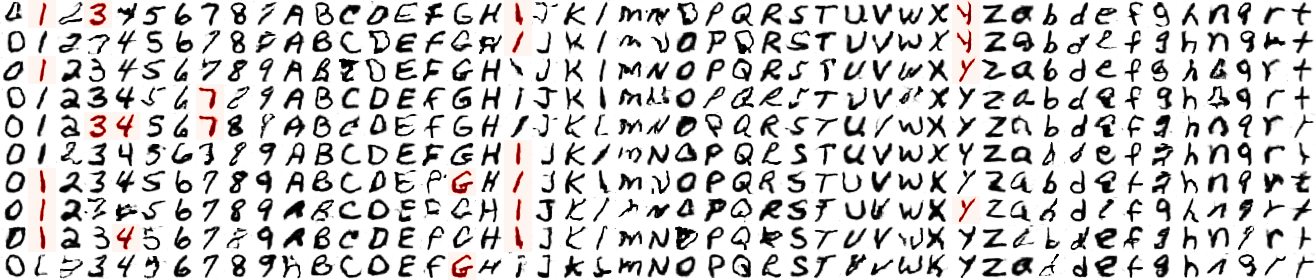 0 1 2 3 4 5 6 7 8 9 A B C D E F G H I J K I m N O P Q R S T U V W X Y Z a b d e f g h n q r t
0 1 2 3 4 5 6 7 8 A B C D E F G H I J K I m N O P Q R S T U V W X Y Z a b d e f g h n g t
0 1 2 3 4 5 6 7 8 9 A B C D E F G H I J K I M N O P Q R S T U V W X Y Z a b d e f g h q r t
0 1 2 3 4 5 6 7 8 9 A B C D E F G H I J K I m O P Q R S T U V W X Y Z a b d e f g h q r t
0 1 2 3 4 5 6 7 8 9 A B C D E F G H I J K L m N O P Q R S T U V W X Y Z a b d e f g h n q r
0 1 2 3 4 5 6 3 8 9 A B C D E F G H I J K I m N O P Q R S T U V W X Y Z a b d e f g h n q r t
0 1 2 3 4 5 6 7 8 9 A B C D E F G H I J K I m N O P Q R S T U V W X Y Z a b d e f g h n q r t
0 1 2 3 4 5 6 7 8 9 A B C D E F G H I J K I M N O P Q R S T U V W X Y Z a b d e f g h n g r t
0 1 2 3 4 5 6 7 8 9 A B C D E F G H I J K I m N D P Q R S T U V W X Y Z a b d e f g h n r t
0 2 3 4 5 6 7 8 9 h B C D E F G H I J K m N O P Q R S T V W X Y Z a b d e f g h n q r t